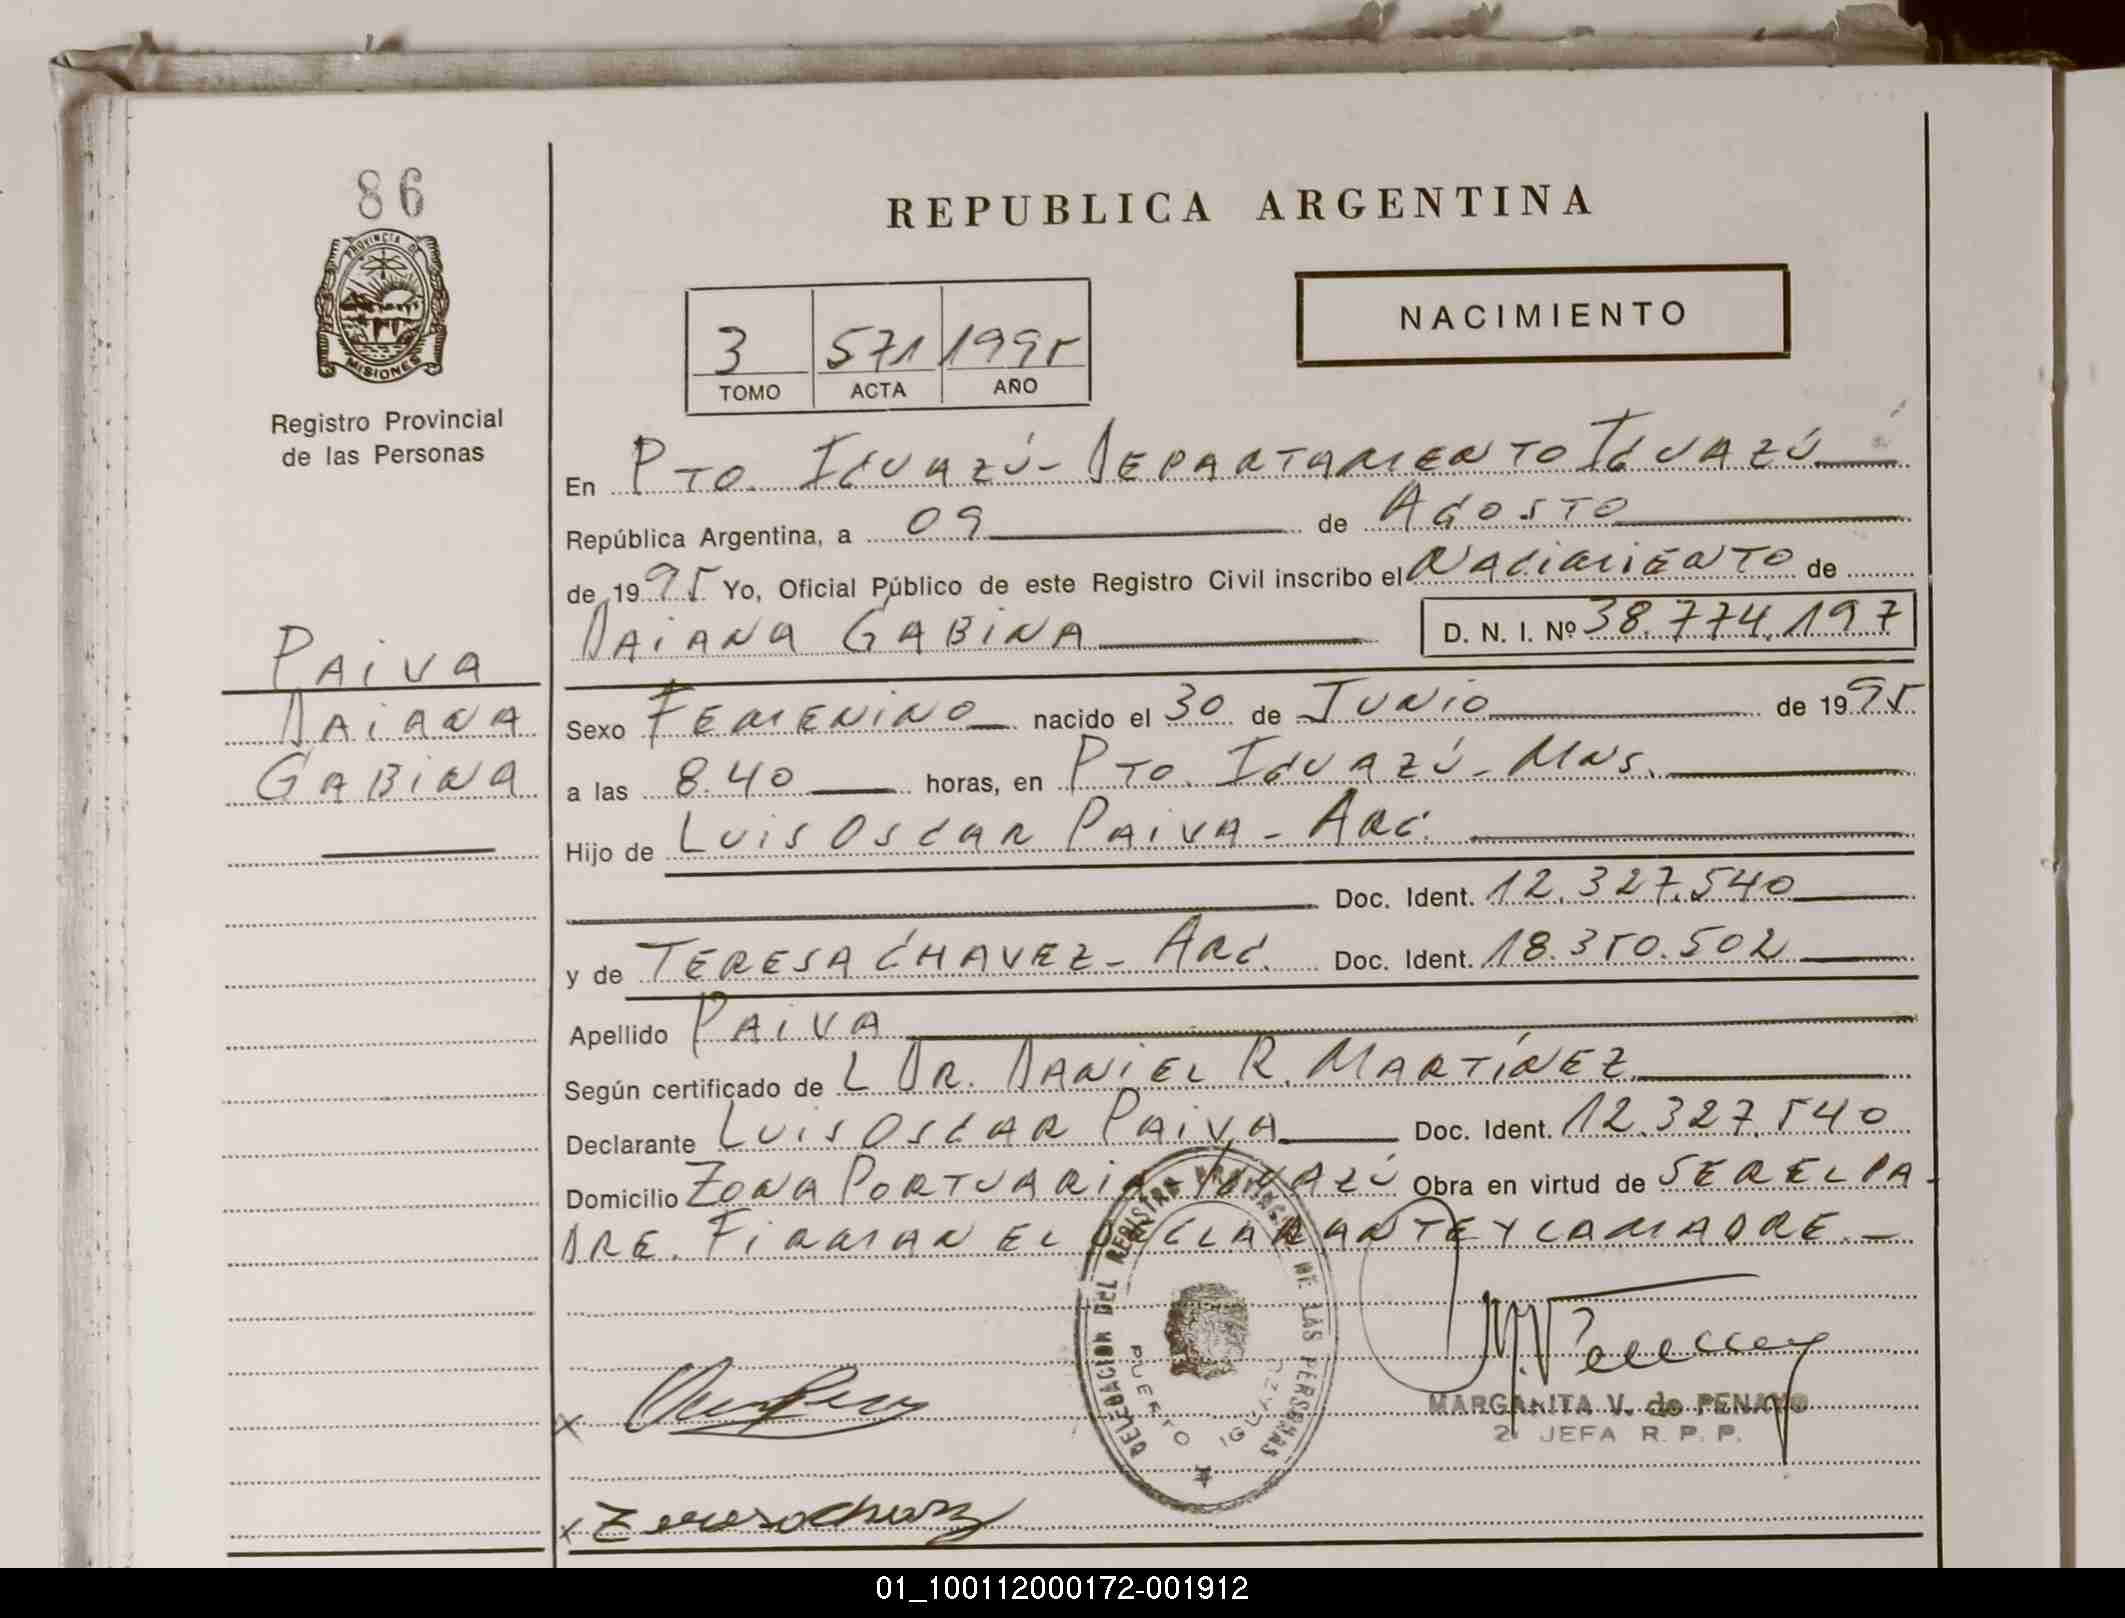 86
PROVINCIA DE
MISIONES
Registro Provincial
de las Personas
PAIVA
DAIANA
GABINA
REPUBLICA ARGENTINA
3 571 1995
TOMO ACTA AÑO
NACIMIENTO
En PTO. IGUAZÚ - DEPARTAMENTO IGUAZÚ
República Argentina, a 09 de AGOSTO
de 1995 Yo, Oficial Público de este Registro Civil inscribo el NACIMIENTO de
DAIANA GABINA D. N. I. Nº 38.774.197
Sexo FEMENINO nacido el 30 de JUNIO de 1995
a las 8.40 horas, en PTO. IGUAZÚ - MNS.
Hijo de LUIS OSCAR PAIVA - ARG.
Doc. Ident. 12.327.540
y de TERESA CHAVEZ - ARG. Doc. Ident. 18.350.502
Apellido PAIVA
Según certificado de L DR. DANIEL R. MARTÍNEZ
Declarante LUIS OSCAR PAIVA Doc. Ident. 12.327.540
Domicilio ZONA PORTUARIA - IGUAZÚ Obra en virtud de SER EL PA-
DRE. FIRMAN EL DECLARANTE Y LA MADRE. -
DELEGACION DEL REGISTRO PROVINCIAL DE LAS PERSONAS
PUERTO IGUAZU
MARGARITA V. de PENAYO
2 JEFA R. P. P.
01_100112000172-001912